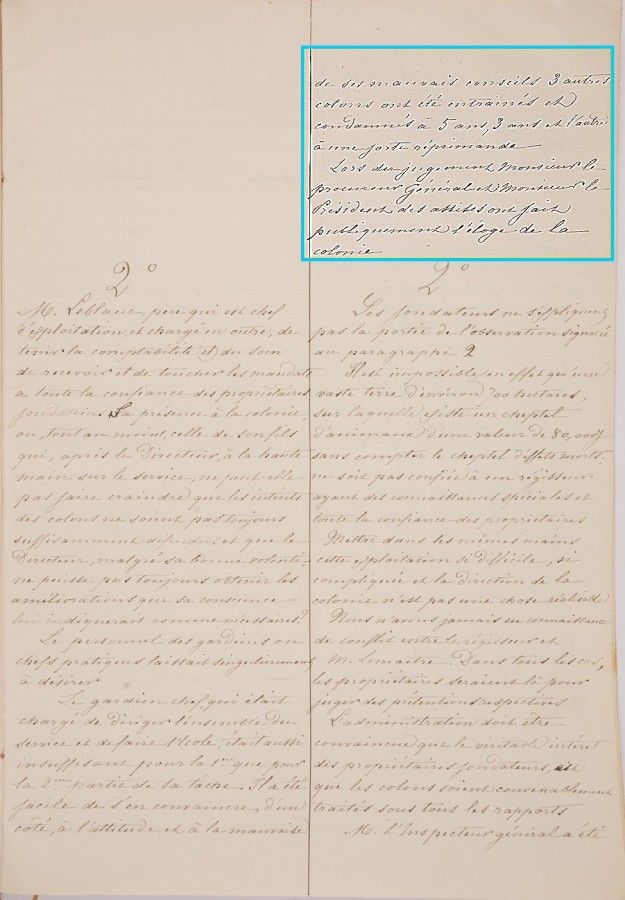 de ses mauvais conseils 3 autres
colons ont été entrainés et
condamnés à 5 ans, 3 ans et l'autre
à une forte réprimande
Lors du jugement Monsieur le
procureur Général et Monsieur le
Président des assises ont fait
publiquement l'éloge de la
colonie
2°
M. Leblanc, père qui est chef
d'exploitation et chargé en outre, de
tenir la comptabilité et du soin
de recevoir et de toucher les mandats
a toute la confiance des propriétaires
fondateurs. Sa présence à la colonie,
ou, tout au moins, celle de son fils
qui, après le Directeur, à la haute
main sur le service, ne peut-elle
pas faire craindre que les intérêts
des colons ne soient pas toujours
suffisamment défendus et que le
Directeur, malgré sa bonne volonté,
ne puisse pas toujours obtenir les
améliorations que sa conscience
lui indiquerait comme nécessaires?
Le personnel des gardiens ou
chefs pratiques laissait singulièrement
à désirer
Le gardien chef, qui était
chargé de diriger l'ensemble du
service et de faire l'école, était aussi
insuffisant pour la 1ère que pour
la 2me partie de sa tâche. Il a été
facile de s'en convaincre, d'un
côté, à l'attitude et à la mauvaise
2°
Les fondateurs ne s'expliquent
pas la portée de l'observation signalée
au paragraphe 2
Il est impossible en effet qu'une
vaste terre d'environ 700 hectares,
sur laquelle existe un cheptel
d'animaux d'une valeur de 80,000f
sans compter le cheptel d'effets morts,
ne soit pas confiée à un régisseur
ayant des connaissances spéciales et
toute la confiance des propriétaires
Mettre dans les mêmes mains
cette exploitation si difficile, si
compliquée et la direction de la
colonie n'est pas une chose réalisable
Nous n'avons jamais eu connaissance
de conflit entre le régisseur et
M. Lemaitre. Dans tous les cas,
les propriétaires seraient là pour
juger des prétentions respectives
L'administration doit être
convaincue que le véritable intérêt
des propriétaires fondateurs, est
que les colons soient convenablement
traités sous tous les rapports
M. L'Inspecteur général a été